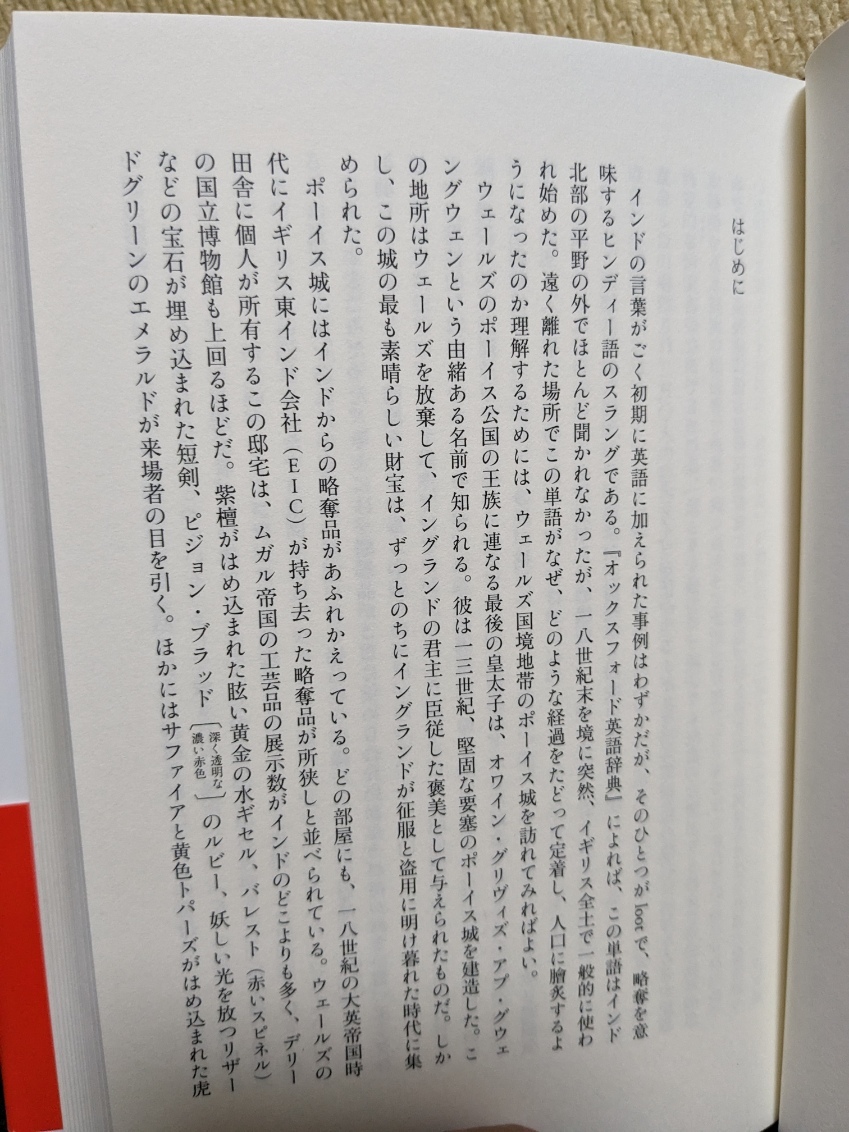 はじめに
インドの言葉がごく初期に英語に加えられた事例はわずかだが、そのひとつが loot で、略奪を意
味するヒンディー語のスラングである。『オックスフォード英語辞典』によれば、この単語はインド
北部の平野の外でほとんど聞かれなかったが、一八世紀末を境に突然、イギリス全土で一般的に使わ
れ始めた。遠く離れた場所でこの単語がなぜ、どのような経過をたどって定着し、人口に膾炙するよ
うになったのか理解するためには、ウェールズ国境地帯のポーイス城を訪れてみればよい。
ウェールズのポーイス公国の王族に連なる最後の皇太子は、オワイン・グリヴィズ・アプ・グウェ
ングウェンという由緒ある名前で知られる。彼は一三世紀、堅固な要塞のポーイス城を建造した。こ
の地所はウェールズを放棄して、イングランドの君主に臣従した褒美として与えられたものだ。しか
し、この城の最も素晴らしい財宝は、ずっとのちにイングランドが征服と盗用に明け暮れた時代に集
められた。
ポーイス城にはインドからの略奪品があふれかえっている。どの部屋にも、一八世紀の大英帝国時
代にイギリス東インド会社（EIC）が持ち去った略奪品が所狭しと並べられている。ウェールズの
田舎に個人が所有するこの邸宅は、ムガル帝国の工芸品の展示数がインドのどこよりも多く、デリー
の国立博物館も上回るほどだ。紫檀がはめ込まれた眩い黄金の水ギセル、バレスト（赤いスピネル）
などの宝石が埋め込まれた短剣、ピジョン・ブラッド〔深く透明な濃い赤色〕のルビー、妖しい光を放つリザー
ドグリーンのエメラルドが来場者の目を引く。ほかにはサファイアと黄色トパーズがはめ込まれた虎